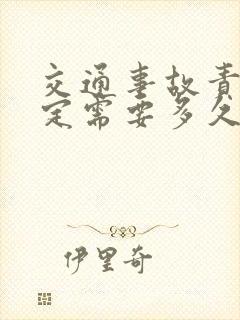 交通事故责
定需要多久
伊里奇